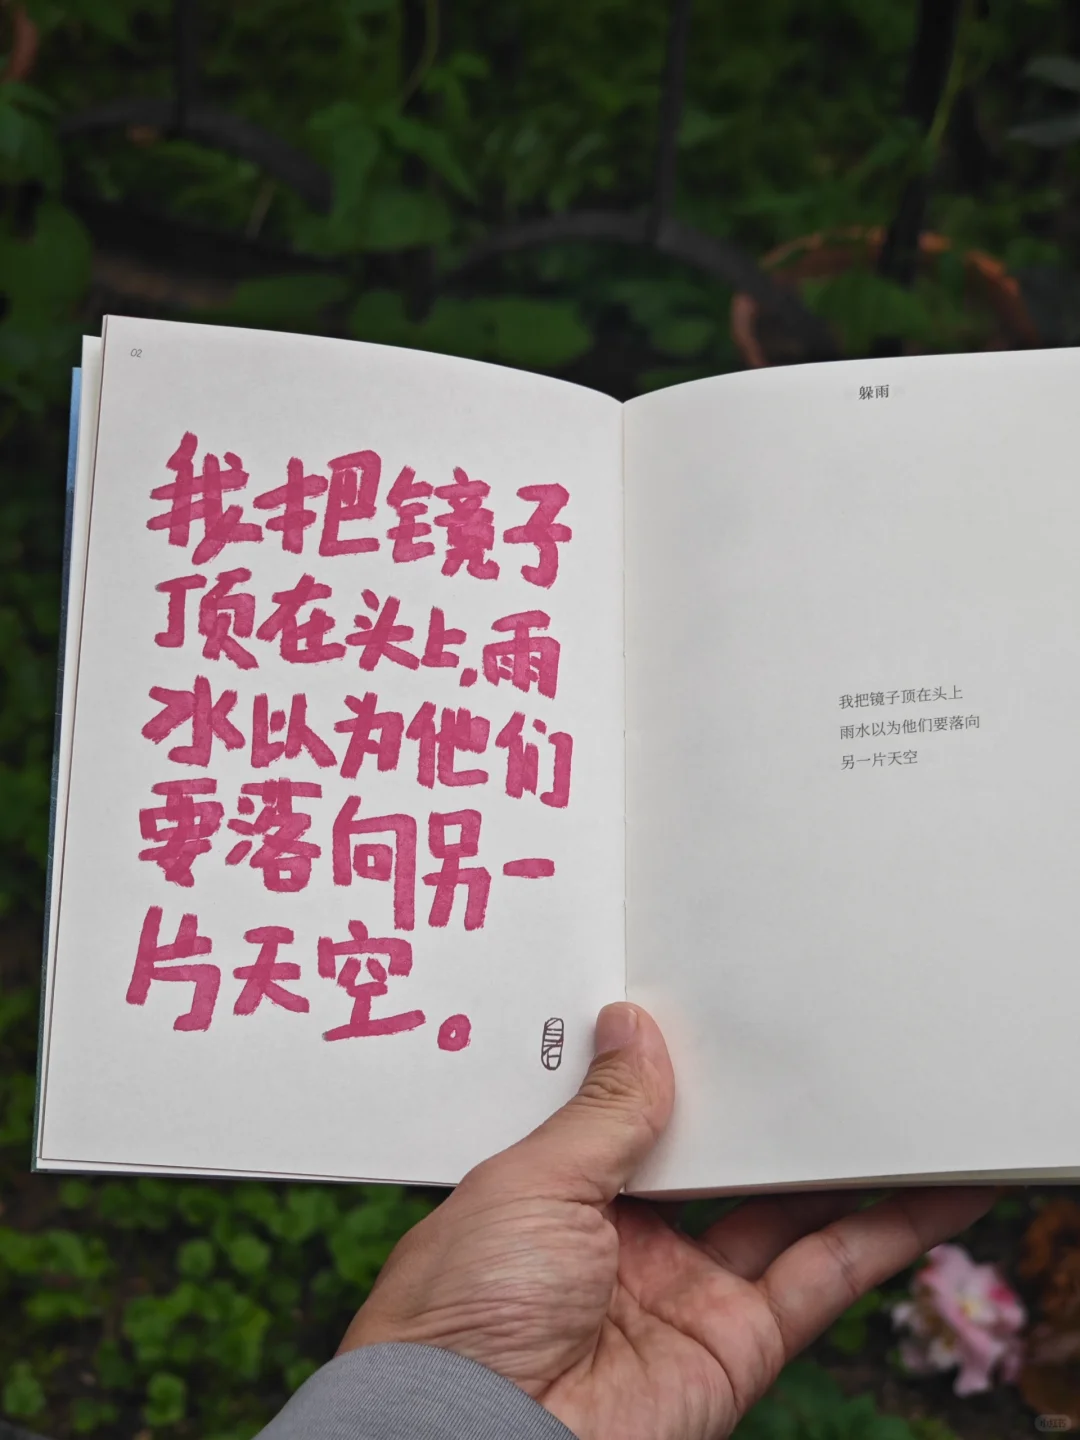 02
我把镜子
顶在头上,雨
水以为他们
要落向另一
片天空。
躲雨
我把镜子顶在头上
雨水以为他们要落向
另一片天空
小红书